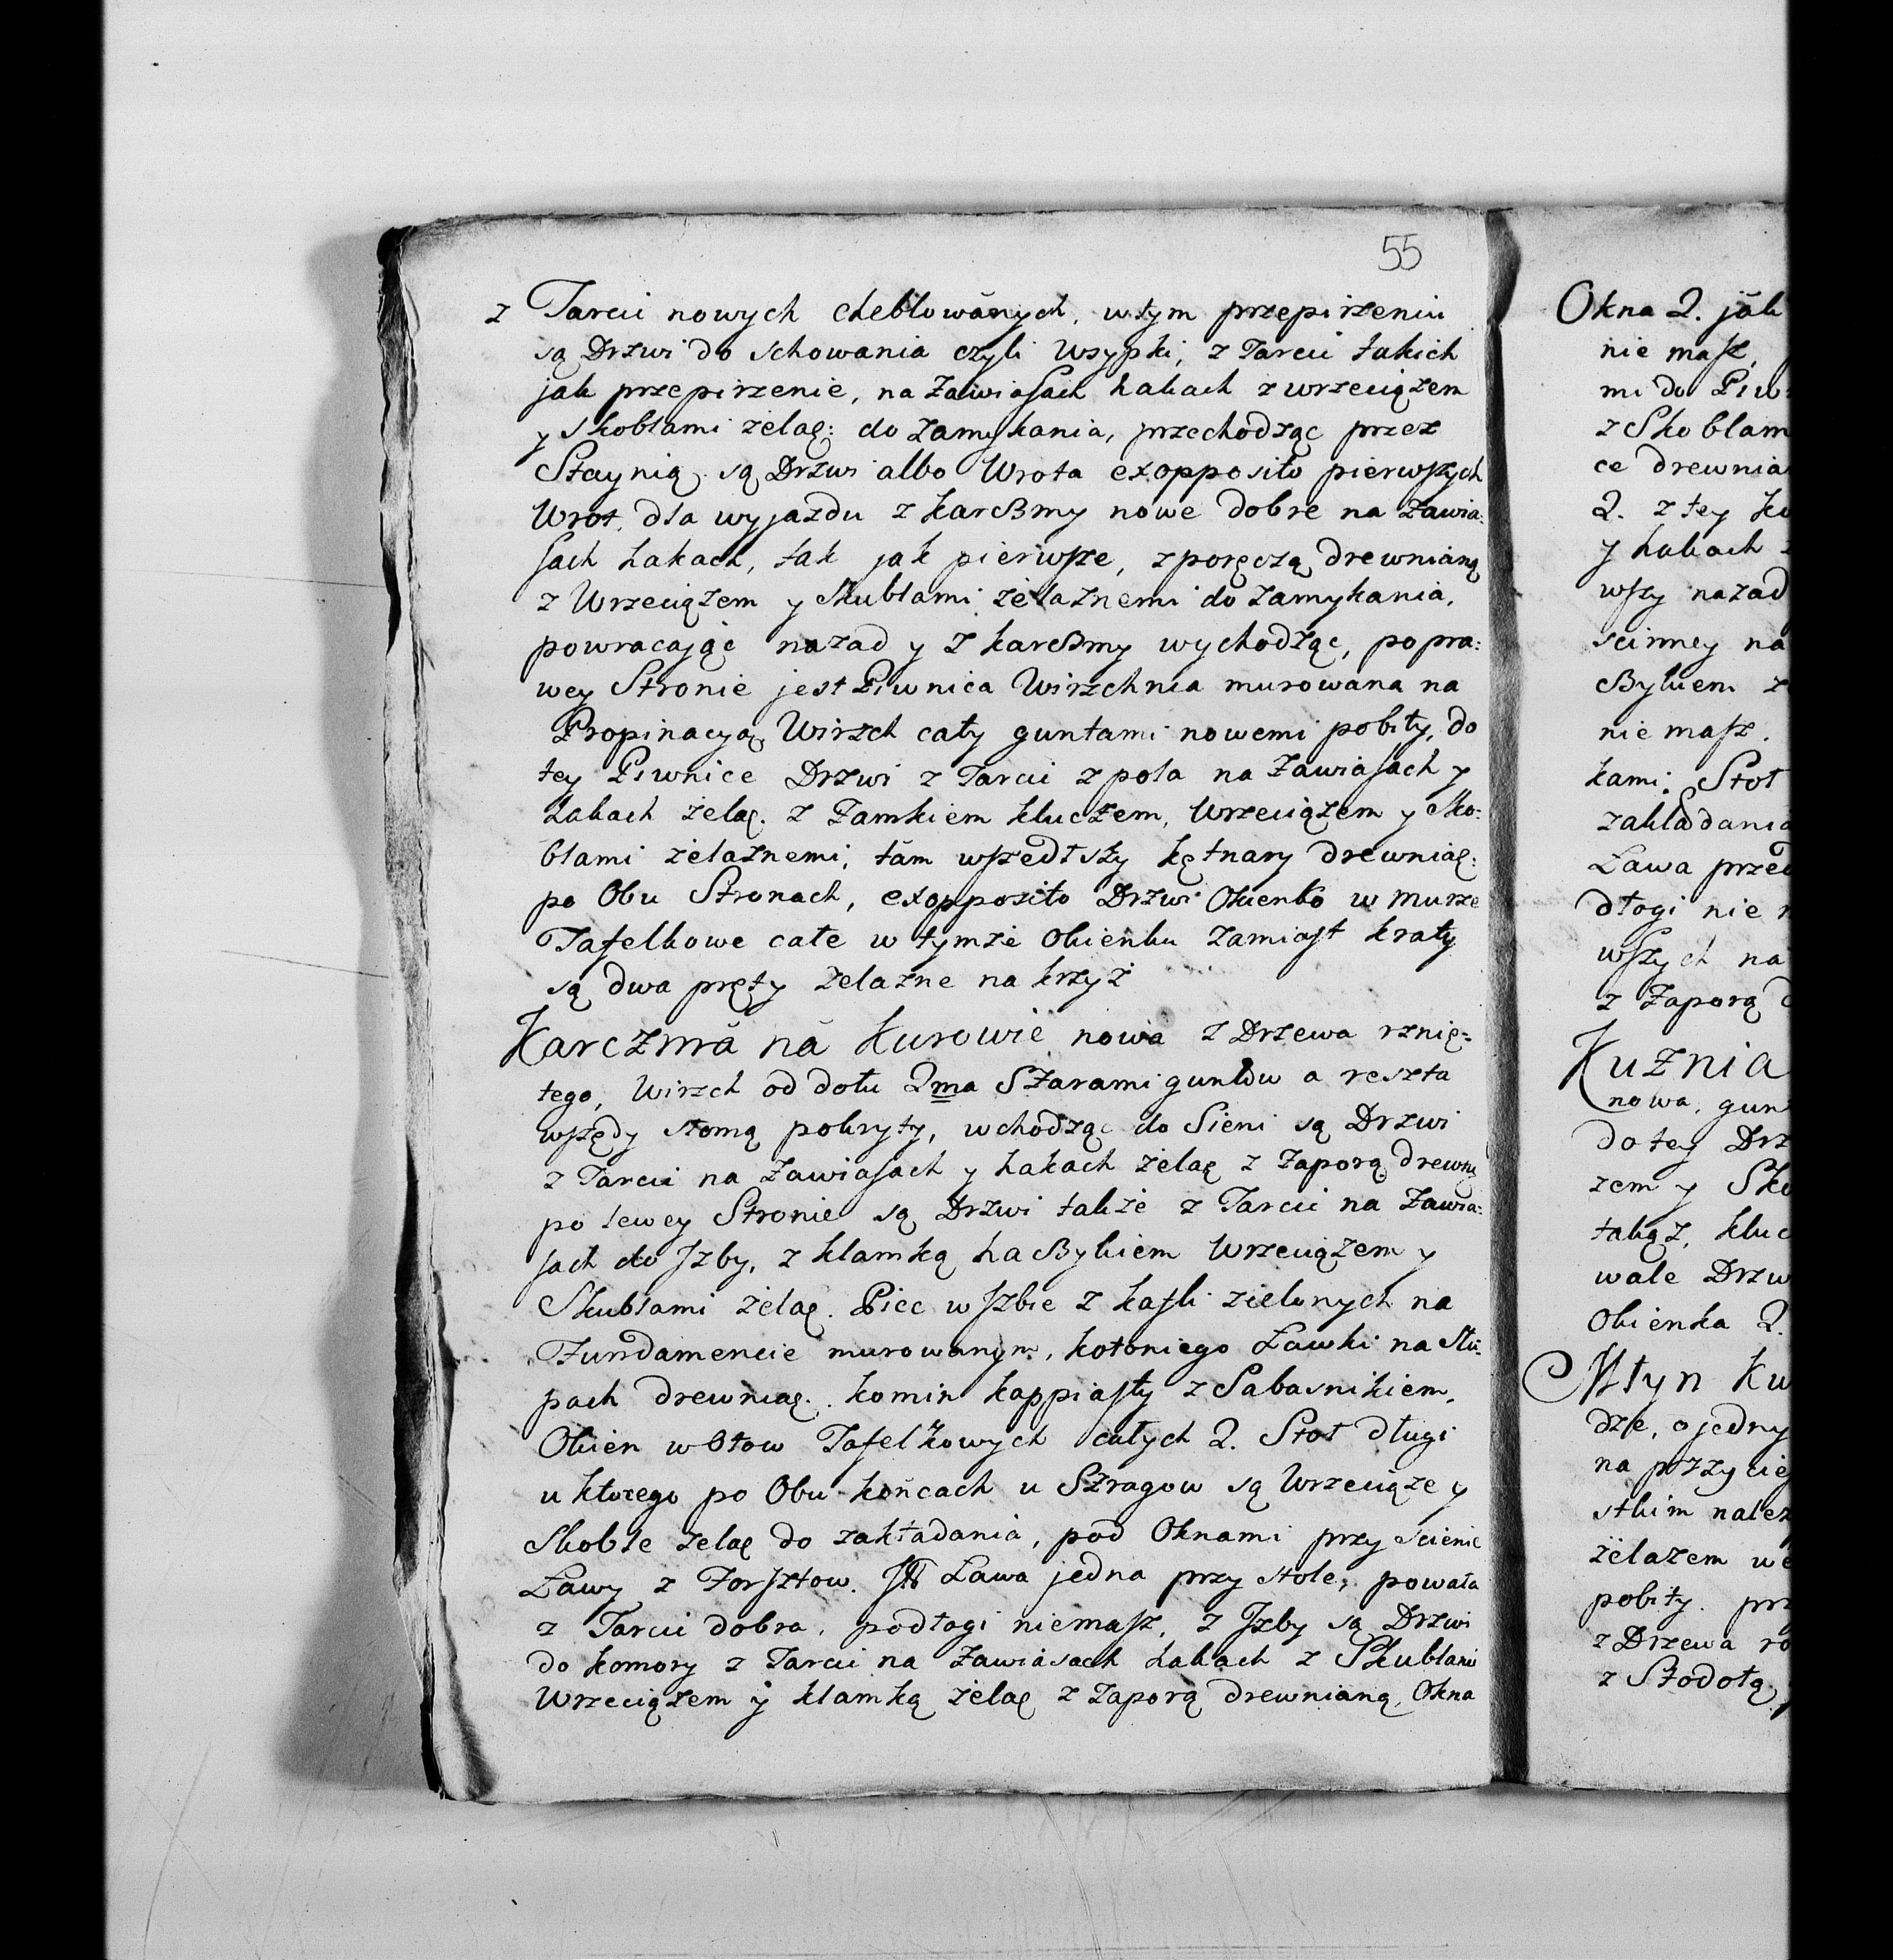 55
z Tarcic nowych cheblowanych, w tym przepirzeniu
są Drzwi do schowania czyli Wsypki, z Tarcic takich
jak przepirzenie, na Zawiasach hakach z wrzeciązem
y skoblami żelaę: do zamykania, przechodząc przez
Staynią są Drzwi albo Wrota exopposito pierwszych
Wrot, dla wyjazdu z karczmy nowe dobre na Zawia:
sach hakach, tak jak pierwsze, z poręczą drewnianą
z Wrzeciązem y Skublami żelaznemi do zamykania,
powracając nazad y z karczmy wychodząc, po pra:
wey Stronie jest Piwnica Wirzchnia murowana na
Propinacyą, Wirzch cały guntami nowemi pobity, do
tey Piwnice Drzwi z Tarcic z pola na Zawiasach y
hakach żelaę. z Zamkiem kluczem, Wrzeciązem y Sko:
blami żelaznemi, tam wszedłszy kętnary drewniaę:
po Obu Stronach, exopposito Drzwi Okienko w murze
Tafelkowe całe w tymże Okienku zamiast kraty
są dwa pręty żelazne na krzyż
Karczma na Kurowie nowa z Drzewa rznię=
tego, Wirzch od dołu 2ma Szarami guntow a reszta
wszędy słomą pokryty, wchodząc do Sieni są Drzwi
z Tarcic na Zawiasach y hakach żelaę z Zaporą drewną
po lewey Stronie są Drzwi także z Tarcic na Zawia:
sach do Jzby, z klamką haczykiem Wrzeciązem y
Skublami żelaę. Piec w Jzbie z kafli zielonych na
Fundamencie murowanym, koło niego Ławki na słu:
pach drewniaę. komin kappiasty z Sabasnikiem,
Okien w Ołow Tafelkowych całych 2. Stoł długi
u ktorego po Obu końcach u Szragow są Wrzeciąze y
Skoble żelaę do zakładania, pod Oknami przy scienie
Ławy z Forsztow. Ława jedna przy stole, powała
z Tarcic dobra, podłogi niemasz, z Jzby są Drzwi
do komory z Tarcic na Zawiasach hakach z Skublami
Wrzeciązem y klamką żelaę z zaporą drewnianą, Okna
Okna 2. jak
nie masz,
mi do Piw
z Skoblam
ce drewnia
2. z tey ko
y hakach
wszy nazad
scinney na
czykiem z
nie masz.
kami. Stoł
zakładania
Ława przed
dłogi nie
wszych na
z Zaporą
Kuznia
nowa, gun
do tey Drz
zem y Sko
takąz, kluc
wale Drzw
Okienka 2.
Młyn Ku
dze, o jedny
na przycie
stkim należ
żelazem we
pobity. prz
z Drzewa ro
z Stodołą,